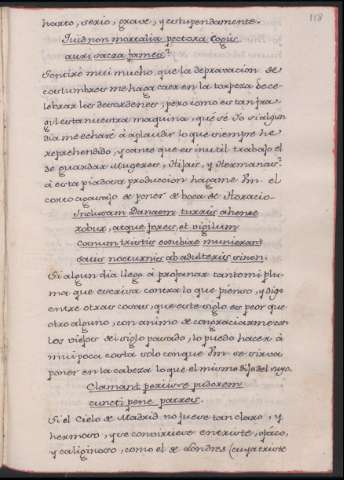 118
harto, serio, grave, y estupendamente.
Quid non mortalia pectora cogis
auri sacra fames?
Sentiré mui mucho, que la depravacion de
costumbres me haga caer en la torpeza de ce-
lebrar los desordenes, pero como es tan fra-
gil esta nuestra maquina, que sé Yo si algun
dia me echaré á aplaudir lo que siempre he
reprehendido, y cante que es inutil trabajo el
de guardar Mugeres, Hijas, y Hermanas?
á esta piadosa produccion hagame Vm. el
corto agasajo de poner de boca de Horacio.
Inclusam Danaem turris ahenea
robustæque fores, et vigilum
canum tristes excubiæ munierant
satis nocturnis ab adulteris
Si algun dia llego á profanar tanto mi plu-
ma que escriva contra lo que pienso, y digo
entre otras cosas, que este siglo es peor que
otro alguno, con animo de congraciarme con
los viejos del siglo pasado, lo puedo hacer á
mui poca costa solo con que Vm. se sirva
poner en la cabeza lo que el mismo dijo del suyo.
Clamant periisse pudorem
cuncti pene patres.
Si el Cielo de Madrid no fuese tan claro, y
hermoso, y se convirtiese en triste, opaco,
y caliginoso, como el de Londres (cuya triste